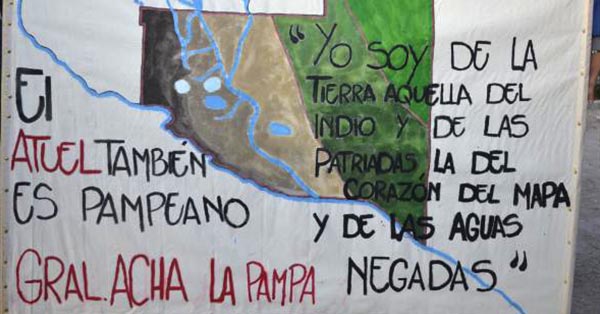 El
ATUEL TAMBIÉN
ES PAMPEANO
GRAL. ACHA LA PAMPA
"YO SOY DE LA
TIERRA AQUELLA DEL
INDIO Y DE LAS
PATRIADAS LA DEL
CORAZÓN DEL MAPA
Y DE LAS AGUAS
NEGADAS"